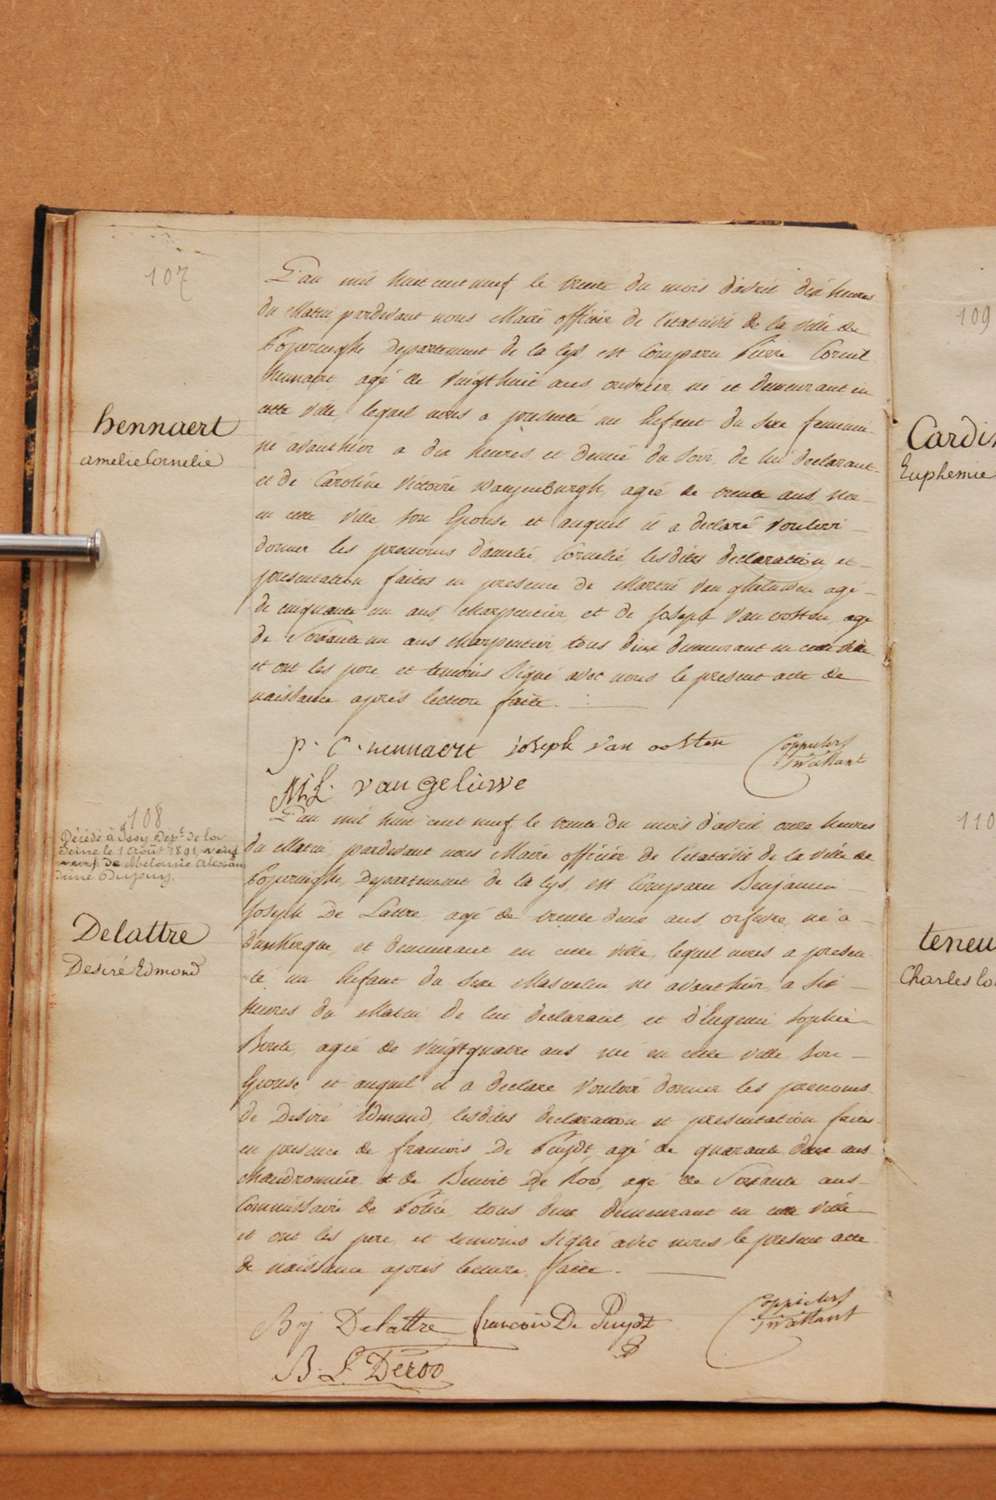 107
L'an mil huit cent neuf le trente du mois d'avril dix heures
du Matin pardevant nous Maire officier de l'etat civil de la ville de
Poperinghe Departement de la Lys est Comparu Pierre Corneil
hennaert, agé de vingt huit ans ouvrier né et demeurant en
cette ville, lequel nous a presenté un Enfant du sexe feminin
né avanthier a dix heures et demie du soir de lui declarant
et de Caroline Victoire agée de trente ans née
en cette ville son Epouse et auquel il a declaré vouloir
donner les prenoms d'amelie Cornelie lesdites declaration et
presentation faites en presence de Martin Van agé
de cinquante un ans, charpentier, et de Joseph Van oosten, age
de Soixante un ans charpentier tous deux demeurant en cette ville
et ont les pere et temoins Signé avec nous le present acte de
naissance après lecture faite.
hennaert
amelie Cornelie
P. C. hennaert joseph van oosten
M.L. van geluwe
108
Décédé à Issy Dept de la
Seine le 1 Août 1891, veuf
de Mélanie Alexan
drine Dupuis.
L'an mil huit cent neuf le trente du mois d'avril onze heures
du Matin, pardevant nous Maire officier de l'etat civil de la ville de
Poperinghe, Departement de la Lys, est Comparu Benjamin
Joseph De Lattre agé de trente deux ans orfevre, né a
dunkerque, et demeurant en cette ville, lequel nous a presen
té un Enfant du Sexe Masculin né avanthier a Six
heures du Matin de lui declarant, et d'Eugenie Sophie
agée de vingtquatre ans née en cette ville Son
Epouse, et auquel il a declaré vouloir donner les prenoms
de Desiré Edmond, lesdites declaration et presentation faites
en presence de francois De Puydt, agé de quarante deux ans
chaudronnier, et de Benoit De Roo, age de Soixante ans
Commissaire de Police, tous deux demeurant en cette ville
et ont les pere, et temoins Signé avec nous le present acte
de naissance après lecture faite.
Delattre
Desiré Edmond
Bnj Delattre francois De Puydt
B. L. Deroo
109
Cardin
Euphemie
110
teneu
Charles lo